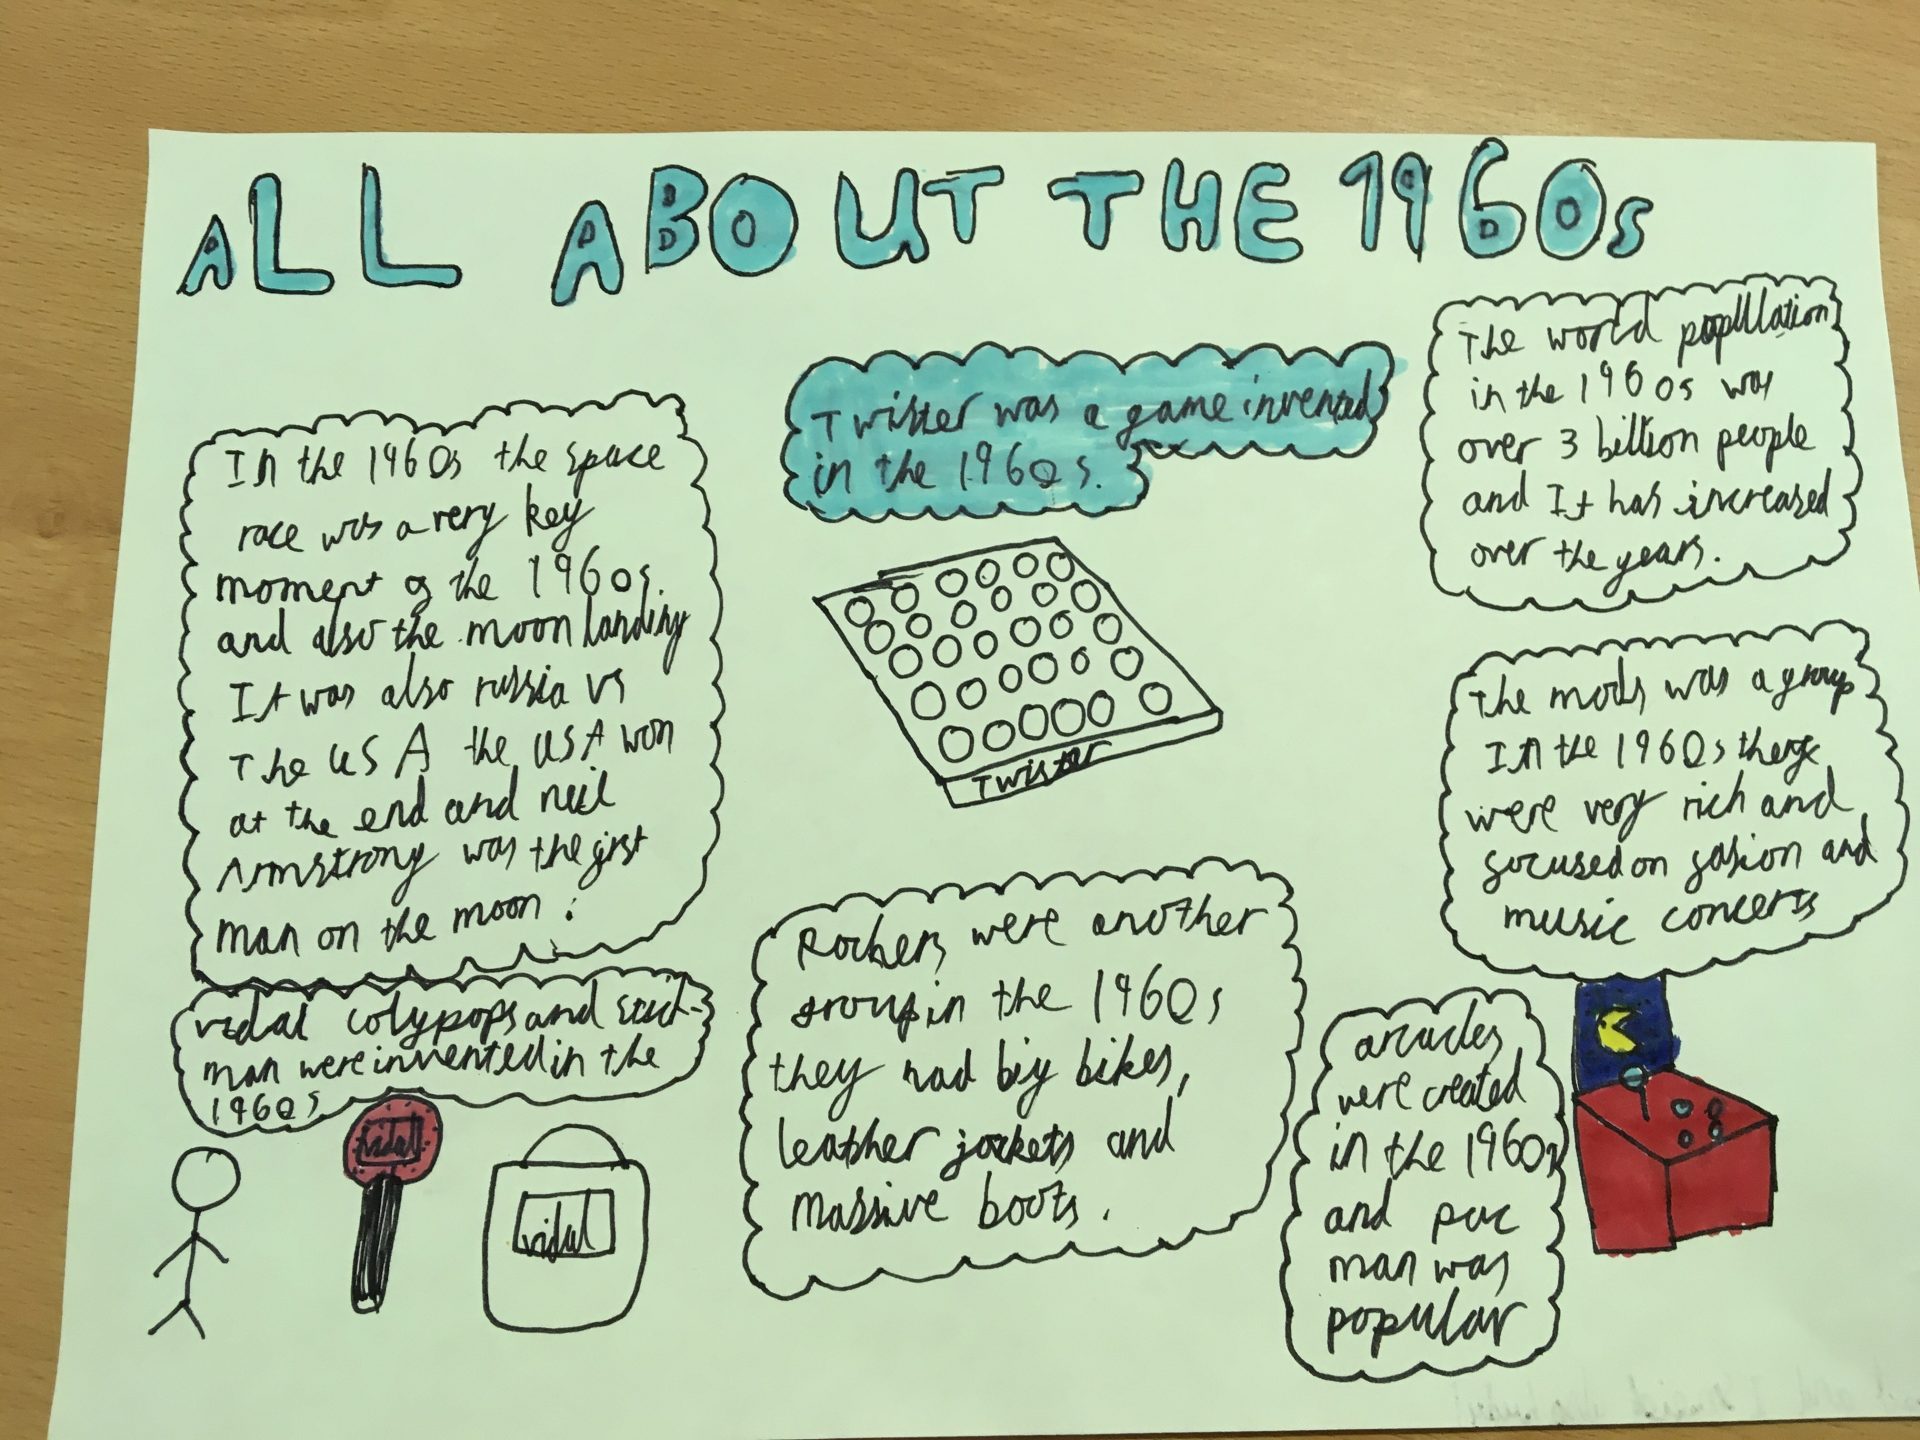 ALL ABOUT THE 1960s
In the 1960s the space
race was a very key
moment of the 1960s.
and also the moon landing
It was also russia vs
The USA the USA won
at the end and neil
Armstrong was the first
man on the moon.
Twister was a game invented
in the 1960s.
Twister
The world population
in the 1960s was
over 3 billion people
and It has increased
over the years.
The mods was a group
In the 1960s
were very rich and
focused on fasion and
music concerts
vidal colypops and stick-
man were invented in the
1960s
vidal
vidal
Rockers were another
group in the 1960s
they had big bikes,
leather jackets and
massive boots.
arcades
were created
in the 1960s
and pac
man was
popular